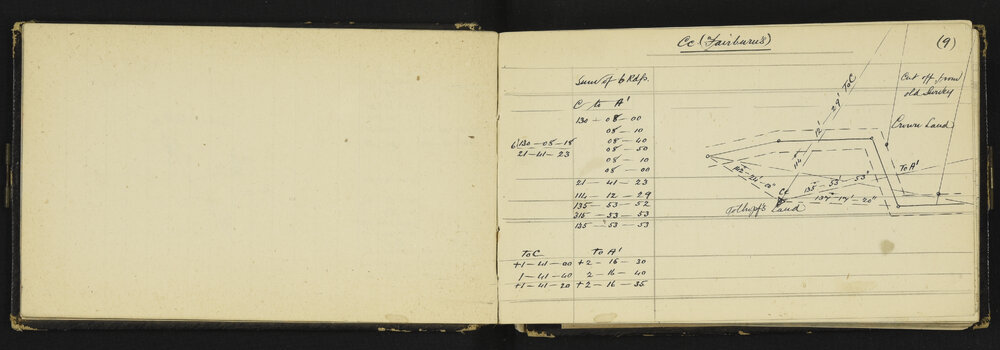 Cc (Fairburus)
(9)
Sum of 6 Rdgs.
C to A'
130 — 08 — 00
08 — 10
6)130 — 08 — 18
08 — 40
21 — 41 — 23
08 — 50
08 — 10
08 — 00
21 — 41 — 23
114 — 12 — 29
135 — 53 — 52
315 — 53 — 53
135 — 53 — 53
To C
to A'
+1 — 41 — 00
+2 — 16 — 30
1 — 41 — 40
2 — 16 — 40
+1 — 41 — 20
+2 — 16 — 35
12' — 29" To C
Cut off from
old Survey
Crown Land
To A'
Cc
135° — 53' — 53"
137° — 17' — 20"
Land